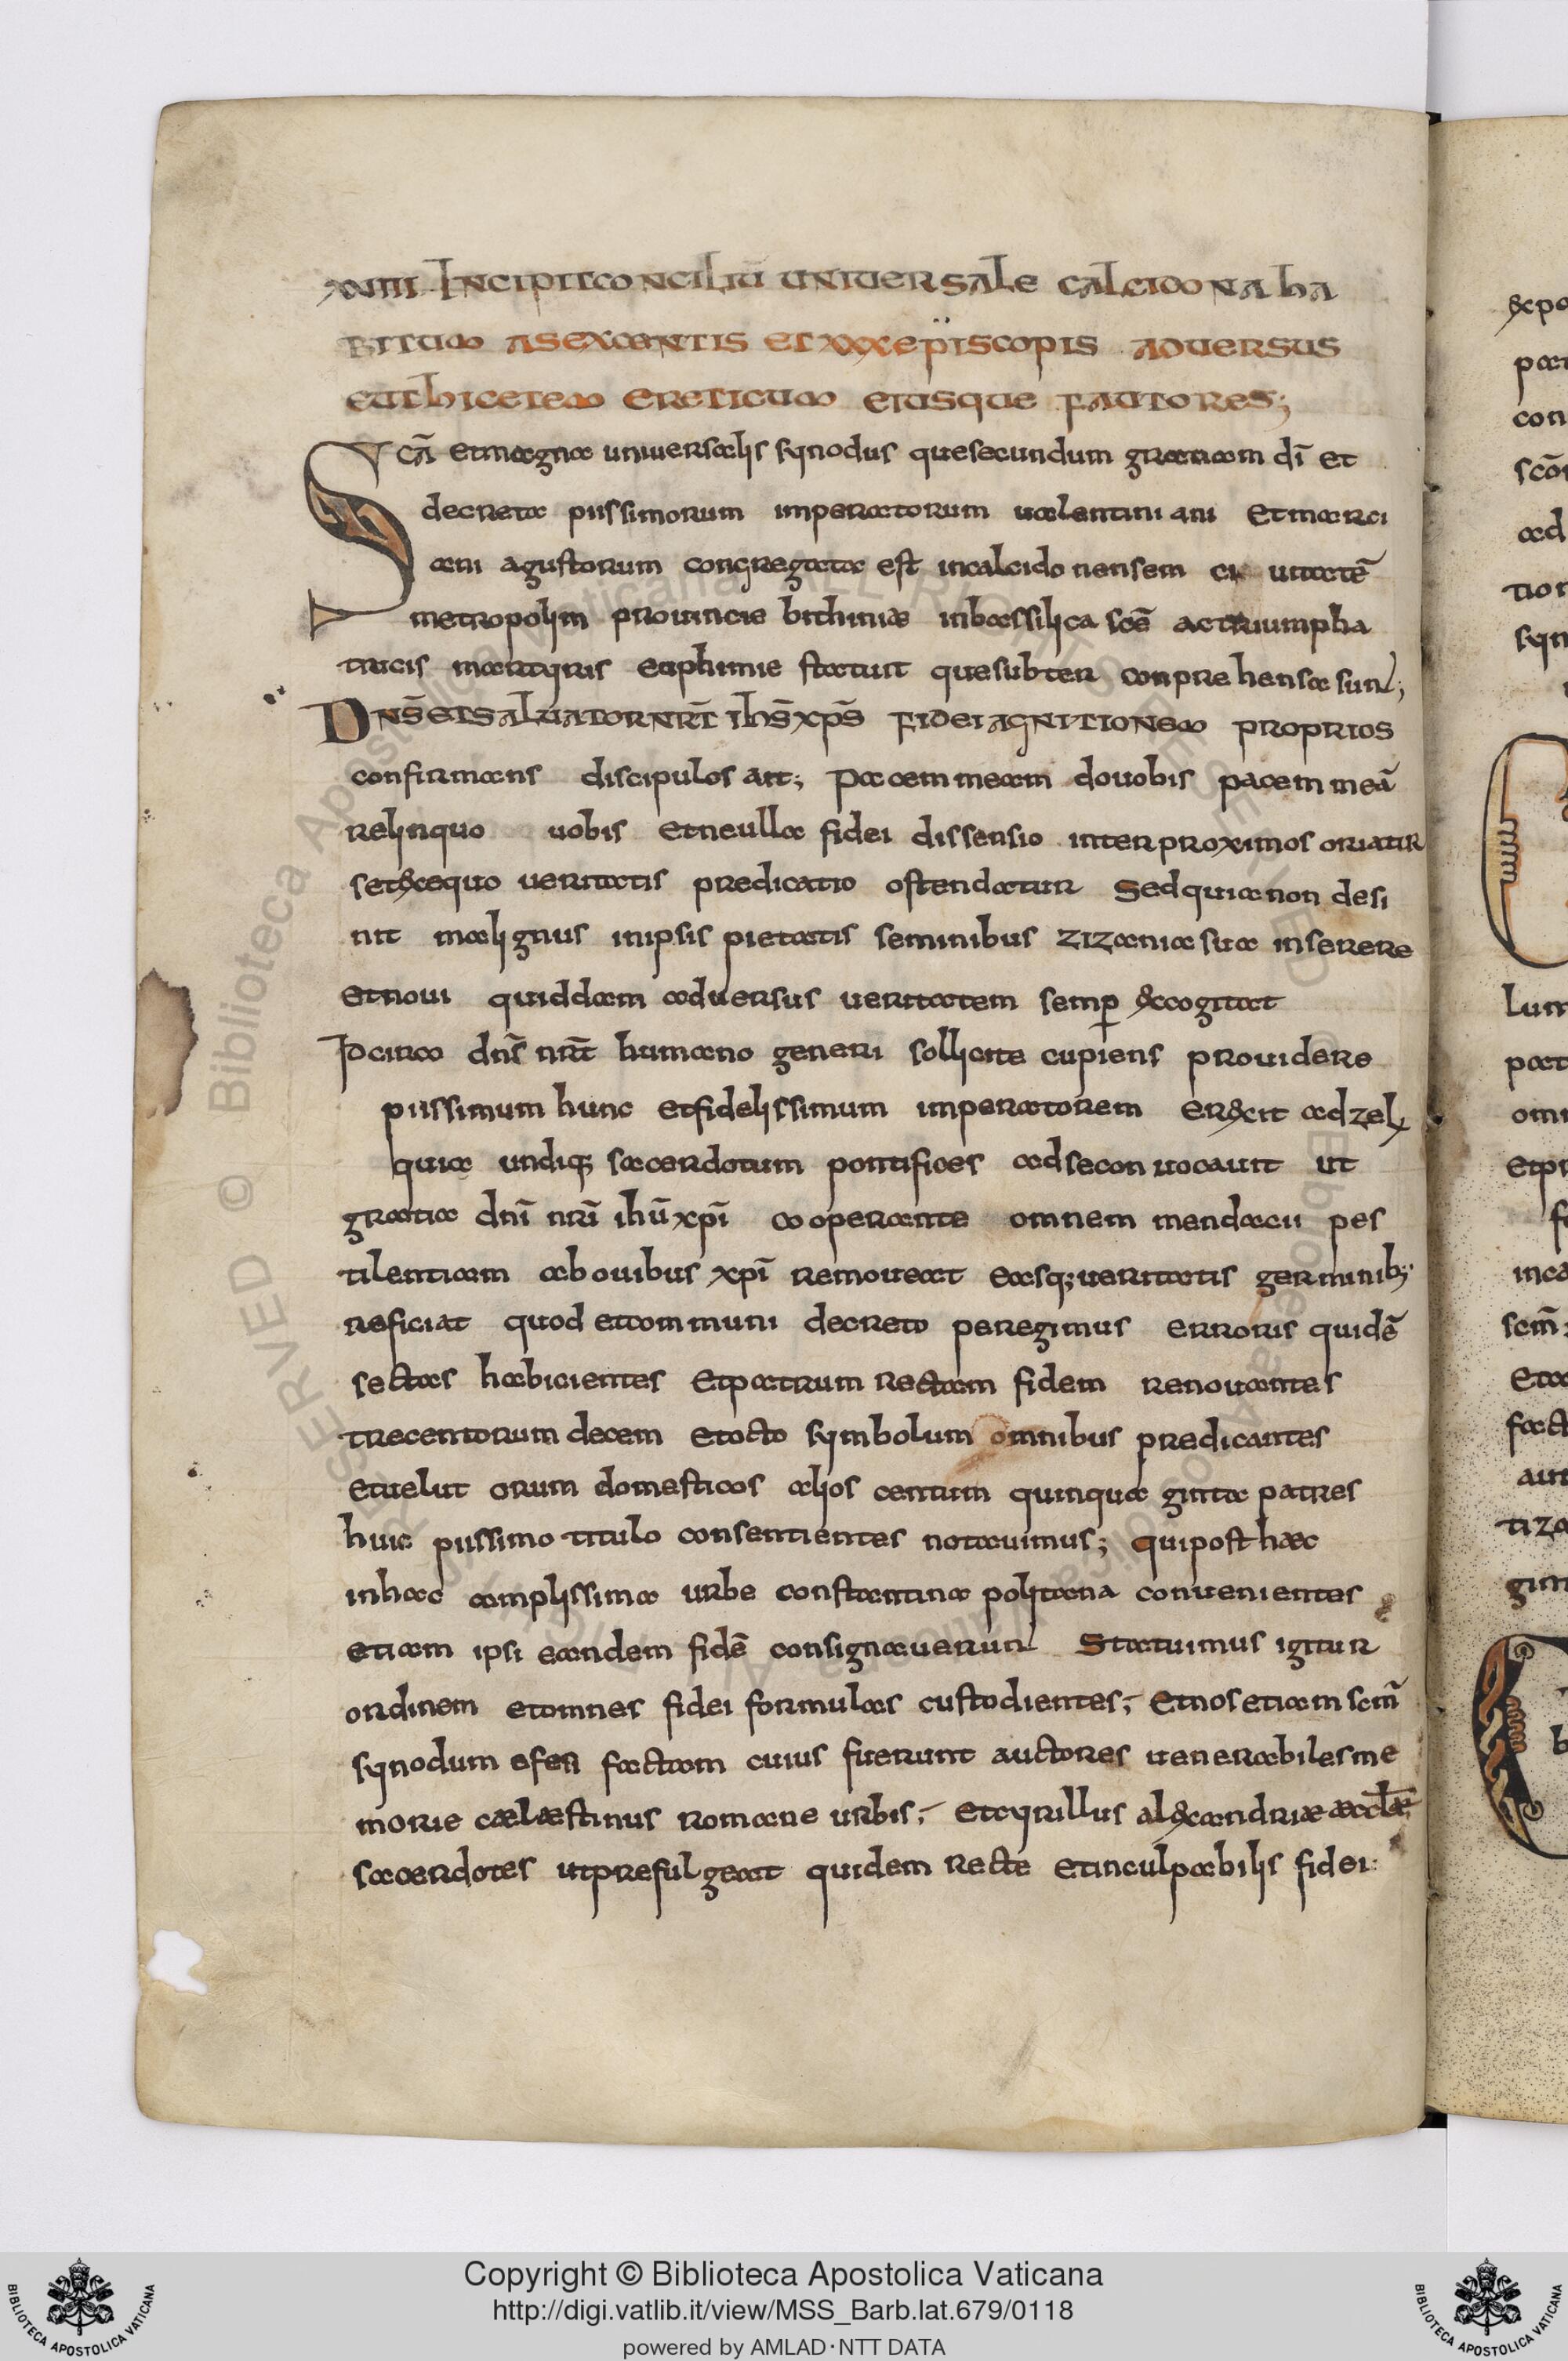 xviiii Incipit conciliū universale calcidona ha
bitum a sexcentis et xxx episcopis adversus
euthicetem ereticum eiusque fautores;
Scā et magna universalis synodus que secundum gratiam dī et
decreta piissimorum imperatorum valentiniani et marci
ani agustorum congregata est in calcidonensem civitatē
metropolim provincie bithiniæ in bassilica scē ac triumpha
tricis martyris euphimie statuit que subter conprehensa sunt;
Dn̄s et salvator nr̄t ihs̄ xps̄ fidei agnitionem proprios
confirmans discipulos ait; Pacem meam do vobis pacem meā
relinquo vobis et ne ulla fidei dissensio inter proximos oriatur
set ex equo veritatis predicatio ostendatur Sed quia non desi
nit malignus in ipsis pietatis seminibus zizania sua inserere
et novi quiddam adversus veritatem semꝑ excogitat
Idcirco dn̄s nr̄t humano generi sollicite cupiens providere
piissimum hunc et fidelissimum imperatorem erexit ad zeli
quia undiq; sacerdotum pontifices ad se convocavit ut
gratia dn̄i nr̄i ihū xp̄i cooperante omnem mendacii pes
tilentiam ab ovibus xp̄i removeat easq; veritatis germinib;
reficiat quod et communi decreto peregimus erroris quidē
sectas habicientes et patrum rectam fidem renovantes
trecentorum decem et octo symbolum omnibus predicantes
et velut orum domesticos alios centum quinquaginta patres
huic piissimo titulo consentientes notavimus; qui post hæc
in hac amplissima urbe constantinapolitana convenientes
etiam ipsi eandem fidē consignaverunt Statuimus igitur
ordinem et omnes fidei formulas custodientes; Et nos etiam scm̄
synodum efesi factam cuius fuerunt auctores venerabiles me
morie cælæstinus romane urbis; et cyrillus alexandriæ æccl̄æ
sacerdotes ut prefulgeat quidem recte et inculpabilis fidei
Copyright © Biblioteca Apostolica Vaticana
http://digi.vatlib.it/view/MSS_Barb.lat.679/0118
powered by AMLAD·NTT DATA
BIBLIOTECA APOSTOLICA VATICANA
BIBLIOTECA APOSTOLICA VATICANA